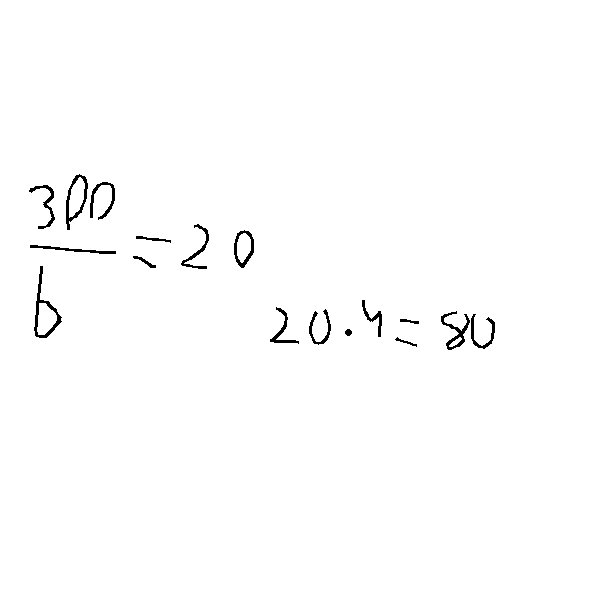 300/b = 20
20 . 4 = 80